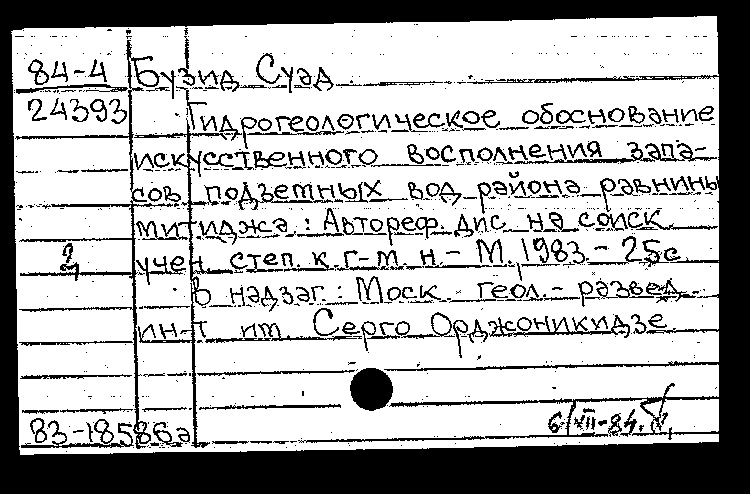 84-4 Бузид Суад.
24393 Гидрогеологическое обоснование
искусственного восполнения запа-
сов подземных вод района равнины
митиджа: Автореф. дис. на соиск.
2 учен. степ. к. г-м. н. - М., 1983 - 25с.
В надзаг.: Моск. геол.-развед.
ин-т им. Серго Орджоникидзе.
83-18586а 6/VII-84.